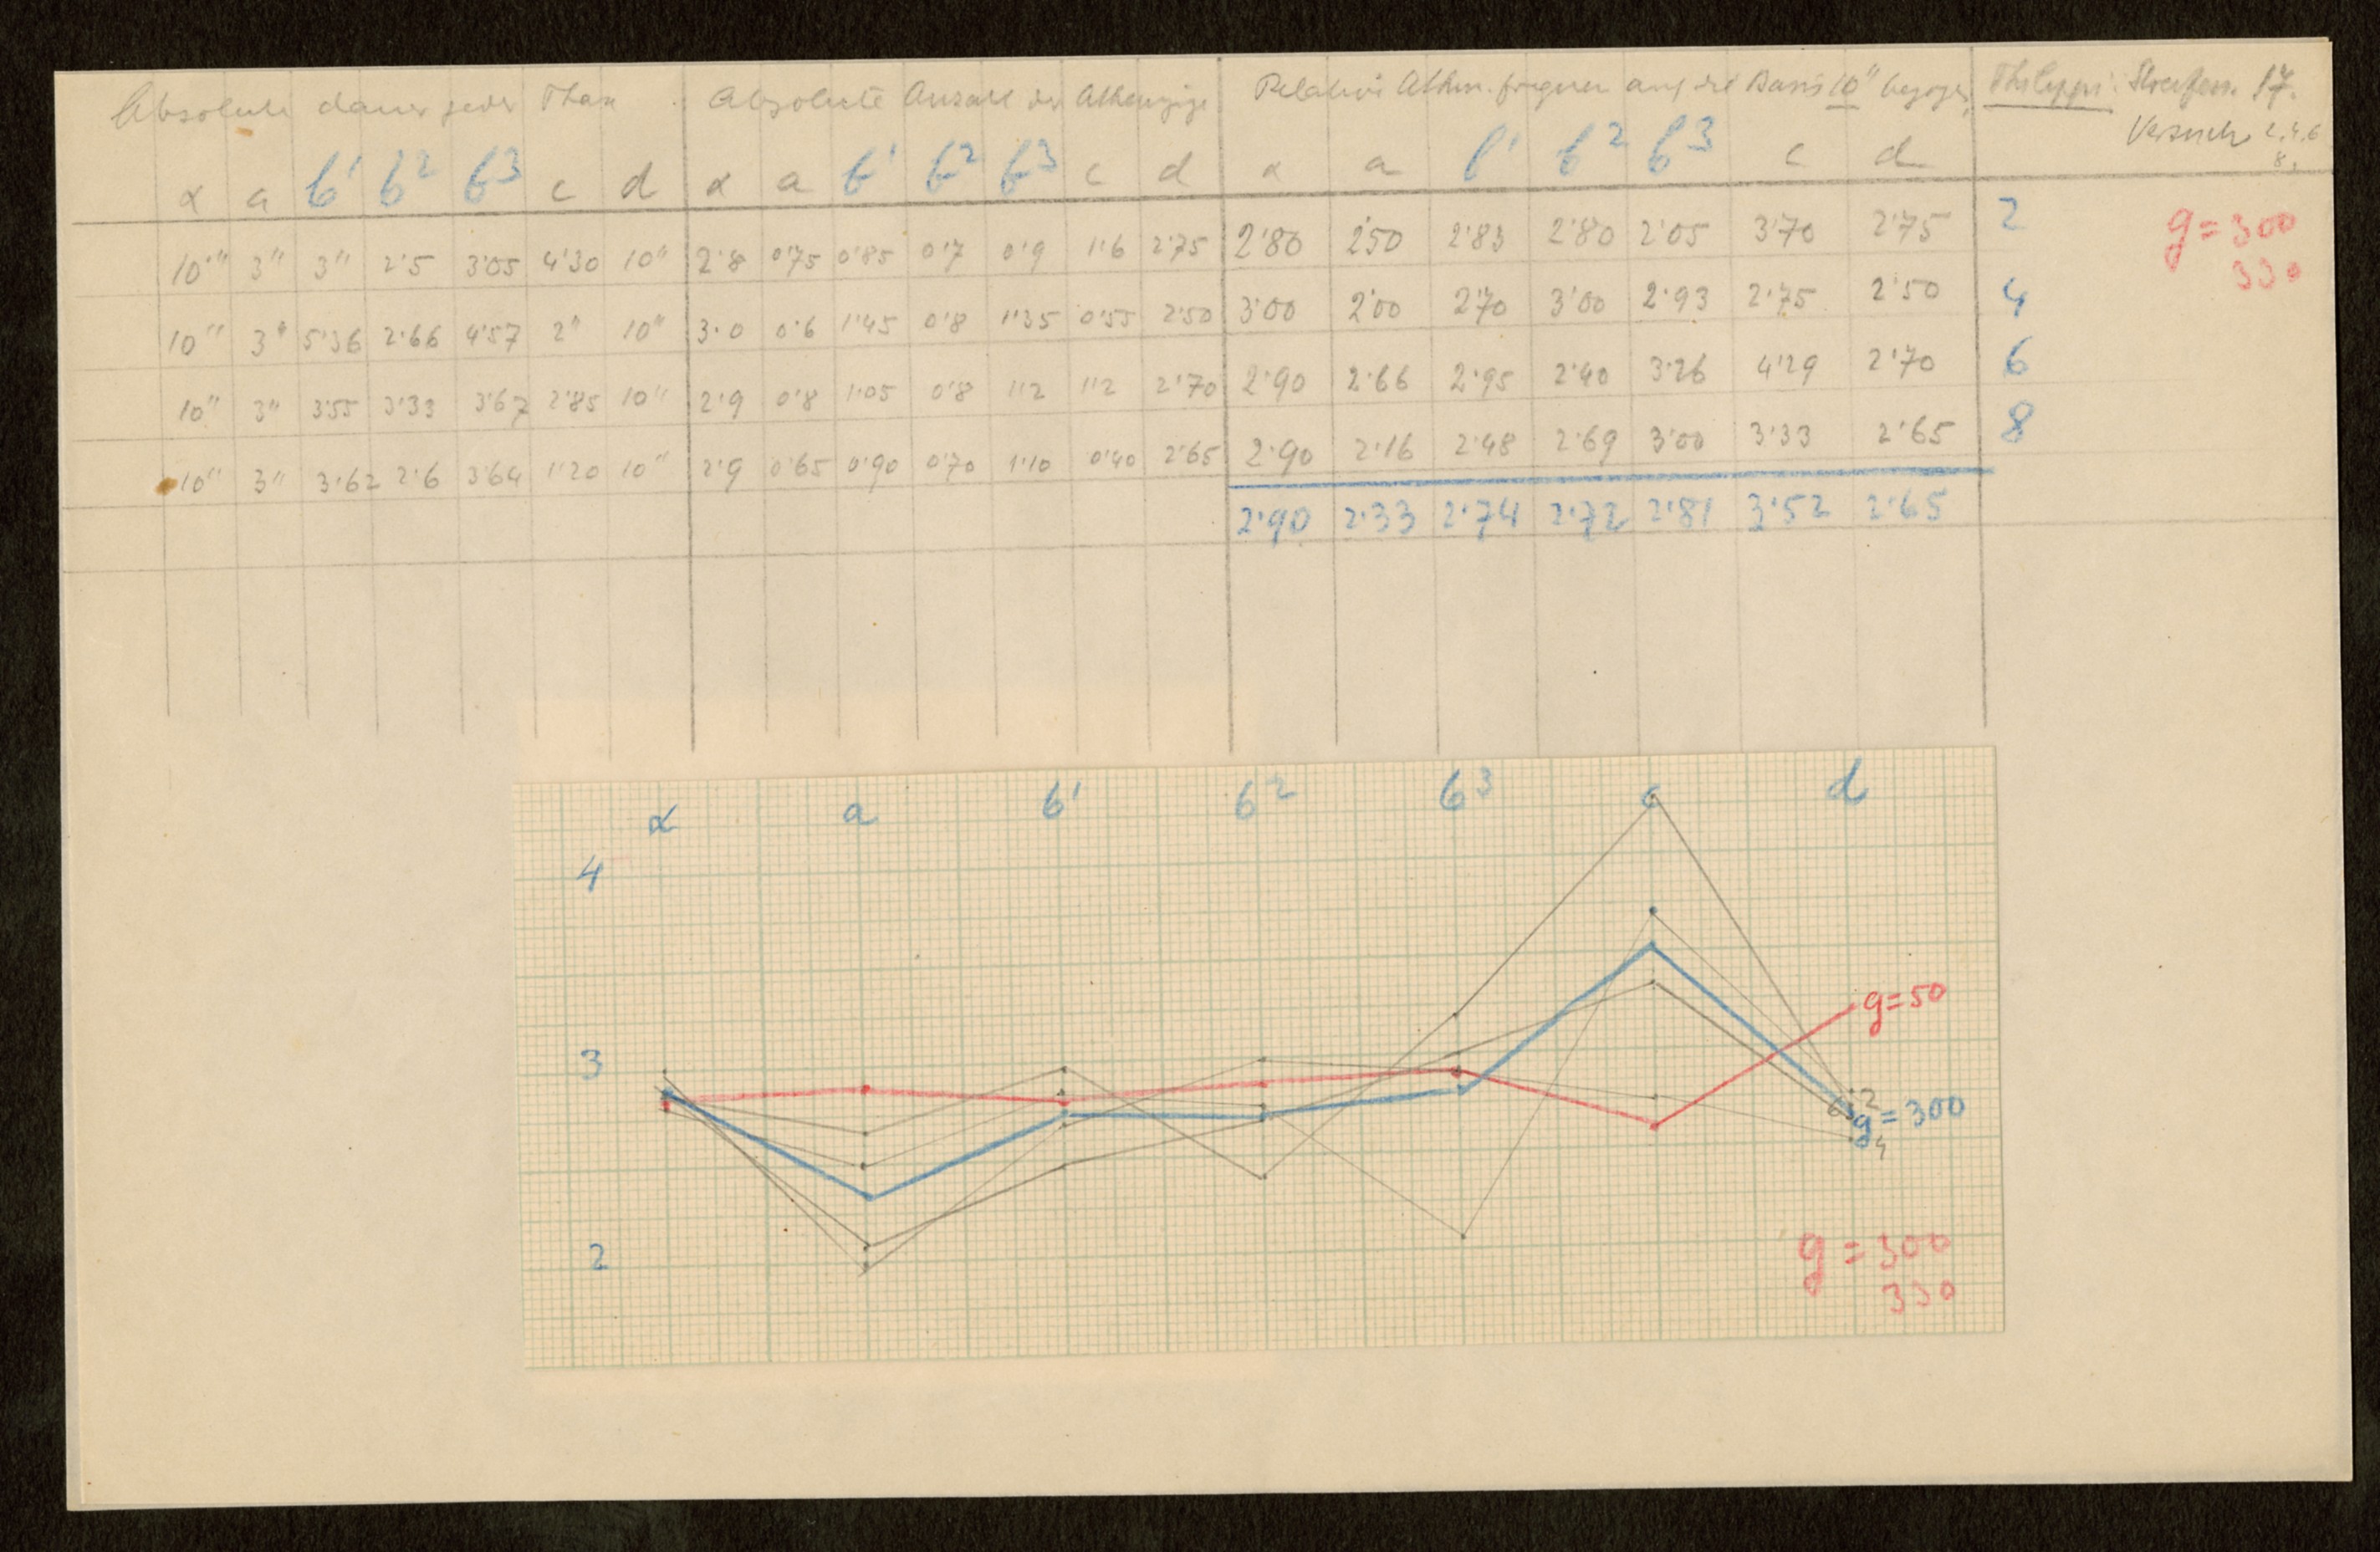 Absolute dauer jeder Phase. Absolute Anzahl der Athemzüge Relative Athm.frequenz auf die Basis 10" bezogen Philippi: 17.
Versuche 2.4.6
8.
α a b¹ b² b³ c d α a b¹ b² b³ c d α a b¹ b² b³ c d
10" 3" 3" 2'5 3'05 4'30 10" 2'8 0'75 0'85 0'7 0'9 1'6 2'75 2'80 2'50 2'83 2'80 2'05 3'70 2'75 2 g=300
330
10" 3" 5'36 2'66 4'57 2" 10" 3'0 0'6 1'45 0'8 1'35 0'55 2'50 3'00 2'00 2'70 3'00 2'93 2'75 2'50 4
10" 3" 3'55 3'33 3'67 2'85 10" 2'9 0'8 1'05 0'8 1'2 1'2 2'70 2'90 2'66 2'95 2'40 3'26 4'29 2'70 6
10" 3" 3'62 2'6 3'64 1'20 10" 2'9 0'65 0'90 0'70 1'10 0'40 2'65 2'90 2'16 2'48 2'69 3'00 3'33 2'65 8
2'90 2'33 2'74 2'72 2'81 3'52 2'65
α a b¹ b² b³ c d
4
g=50
3
2
g=300
4
2
g=300
330